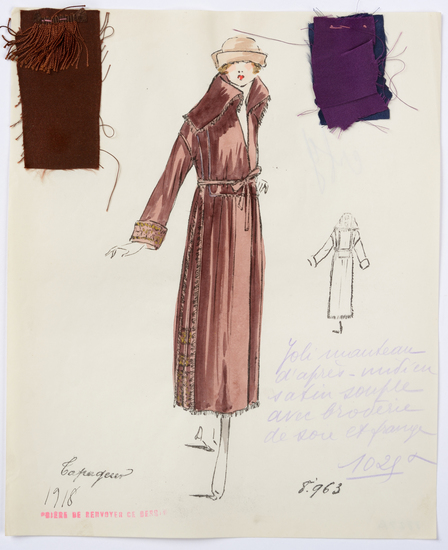 Joli manteau
d'après-midi en
satin souple
avec broderie
de soie et frange
1025 f
Tapageur
1918
8.963
PRIÈRE DE RENVOYER CE DESSIN